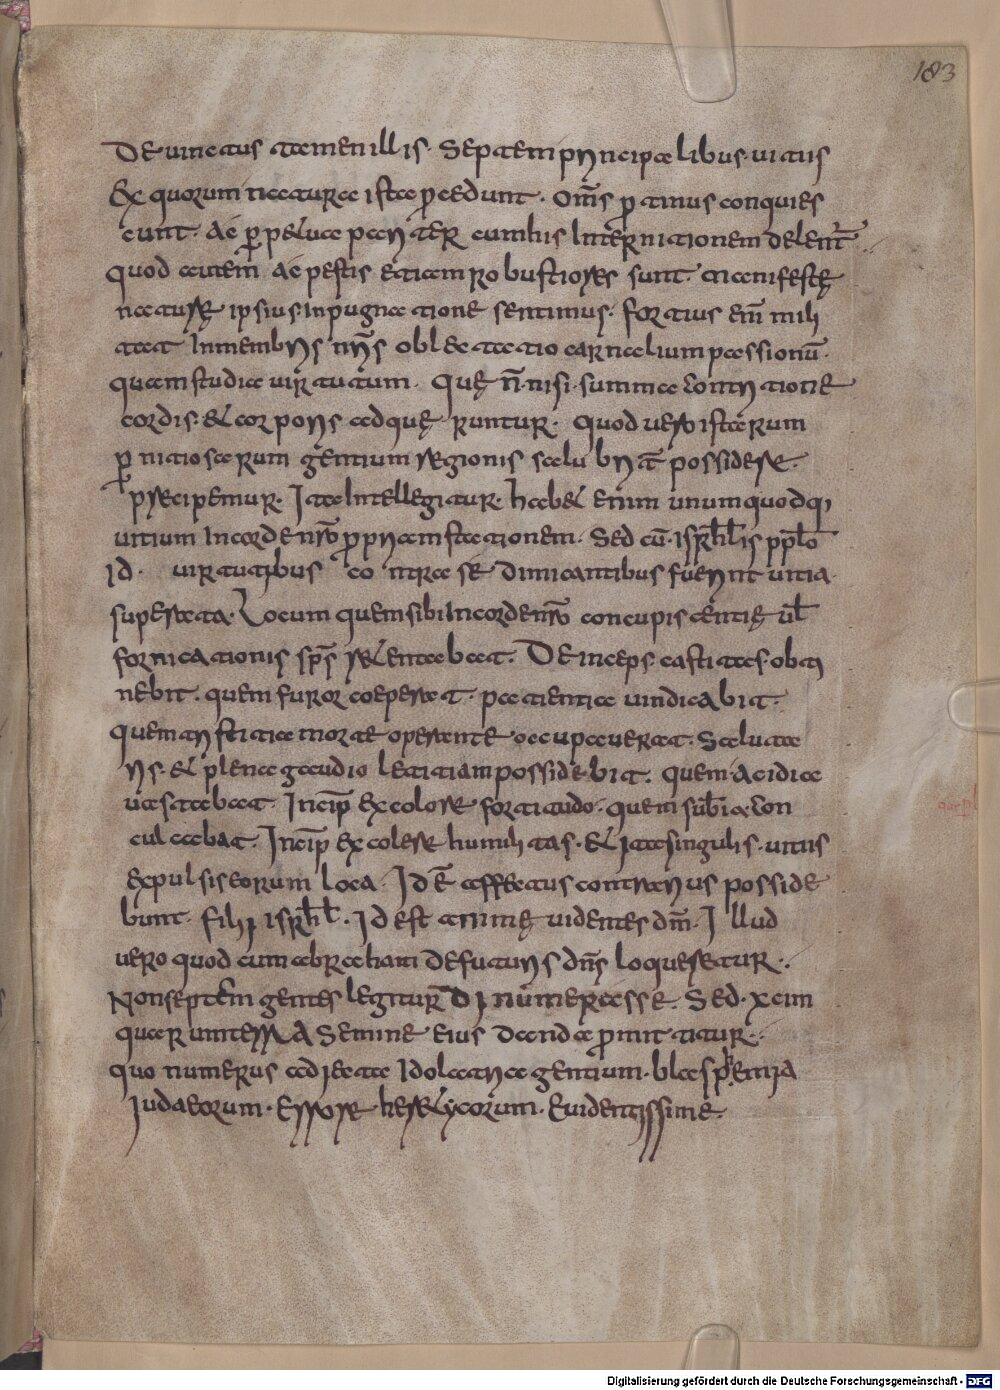 183
Deuinctus tamen illis. Septem principalibus uitiis
Ex quorum natura ista procedunt. Om̄s ptinus conquies
cunt. Ac ppetua pariter cumhis Internitionem delent̄.
quod autem Ac pestis etiam robustiores sunt. manifestę
naturę ipsius inpugnatione sentimus. fortius em̄ mili
tat Inmembris nr̄is oblectatio carnalium passionū.
quam studia uirtutum. Quę n̄. nisi. summa contritione
cordis. & corporis adquęruntur. Quod uero istarum
pnitiosarum gentium regionis salubrit̄ possidere.
praecipemur. Ita Intellegitur. habet enim unumquodq;
uitium Incorde nr̄o ppriam stationem. Sed cū. isrh̄l is pplō
Id. uirtutibus contra se dimicantibus fuerint uitia
superata. Locum quem sibi Incordenr̄o concupiscentię ul̄
fornicationis sps̄ retentabat. Deinceps. castitas. obti
nebit. quem furor coeperat. patientia uindicabit.
quem tristitia morte operente occupauerat. Saluta
ris. & plena gaudio letitiam possidebit. quem. Acidia
uastabat. Incip̄ excolere fortitudo. quem subia con
culcabat. Incip̄ excolere humilitas. & ita singulis. uitiis
expulsis eorum loca. Id ē affectus contrarius posside
bunt. filii isrh̄l. Id est animę uidentes dm̄. Illud
uero quod cum abraham defuturis dn̄s loqueretur.
Nonseptem gentes legitur di numerasse. Sed. x cim
quarum terra semine eius danda promittitur.
quo numerus adiecta Idolatria gentium. blasphemia
Iudaeorum. Errore. hereticorum. Euidentissime.
Digitalisierung gefördert durch die Deutsche Forschungsgemeinschaft - DFG